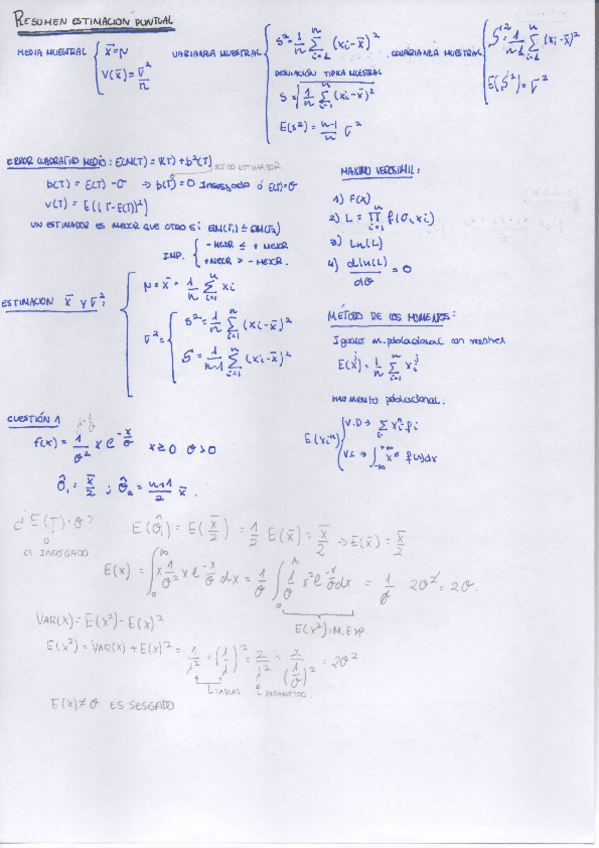 RESUMEN ESTIMACION PUNTUAL
MEDIA MUESTRAL { x̄ = μ
V(x̄) = σ²/n
VARIANZA MUESTRAL { S² = 1/n Σ_{i=1}^{n} (xi - x̄)²
DESVIACIÓN TIPICA MUESTRAL
S = √(1/n Σ_{i=1}^{n} (xi - x̄)²)
E(s²) = (n-1)/n σ²
CUASIVARIANZA MUESTRAL { S'² = 1/(n-1) Σ_{i=1}^{n} (xi - x̄)²
E(S'²) = σ²
ERROR CUADRATICO MEDIO: ECM(T) = V(T) + b²(T)
SESGO ESTIMADOR
b(T) = E(T) - θ → b(T) = 0 Insesgado ó E(T) = θ
V(T) = E((T - E(T))²)
UN ESTIMADOR ES MEJOR QUE OTRO SI ECM(T₁) ≤ ECM(T₂)
INP. { - MEJOR ≤ + MEJOR
+ MEJOR > - MEJOR.
MAXIMO VEROSIMIL:
1) F(x)
2) L = ∏_{i=1}^{n} f(θ, xi)
3) Ln(L)
4) d ln(L)/dθ = 0
ESTIMACION x̄ y σ²: { μ = x̄ = 1/n Σ_{i=1}^{n} xi
σ² = { S² = 1/n Σ_{i=1}^{n} (xi - x̄)²
S = 1/(n-1) Σ_{i=1}^{n} (xi - x̄)²
MÉTODO DE LOS MOMENTOS:
Igualas m. poblacional con
E(x^j) = 1/n Σ_{i=1}^{n} xi^j
momento poblacional.
E(xi^n) { V.D → Σ xi^n fi
V.C → ∫_{-∞}^{+∞} x^n f(x)dx
CUESTIÓN 1
f(x) = 1/θ² x e^{-x/θ} x ≥ 0 θ > 0
θ̂₁ = x̄/2 ; θ̂₂ = (n+1)/2 x̄.
¿E(T) = θ?
ES INSESGADO
E(θ̂₁) = E(x̄/2) = 1/2 E(x̄) = x̄/2 → E(x̄) = x̄/2
E(x) = ∫_0^∞ x 1/θ² x e^{-x/θ} dx = 1/θ ∫_0^∞ 1/θ x² e^{-x/θ} dx = 1/θ 2θ² = 2θ.
E(x²) = M. EXP.
VAR(x) = E(x²) - E(x)²
E(x²) = VAR(x) + E(x)² = 1/λ² + (1/λ)² = 2/λ² = 2/(1/θ)² = 2θ²
TABLAS PARAMETRO
E(x) ≠ θ ES SESGADO